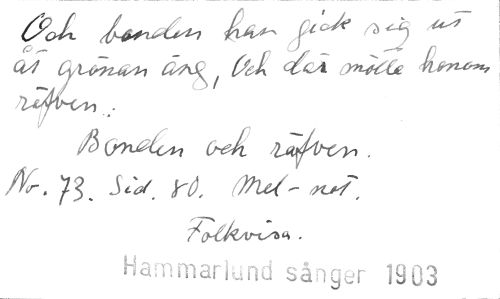 Och bonden han gick sig ut
åt grönan äng, Och där mötte honom
räfven.
Bonden och räfven.
No. 73. Sid. 80. Mel-not.
Folkvisa.
Hammarlund sånger 1903